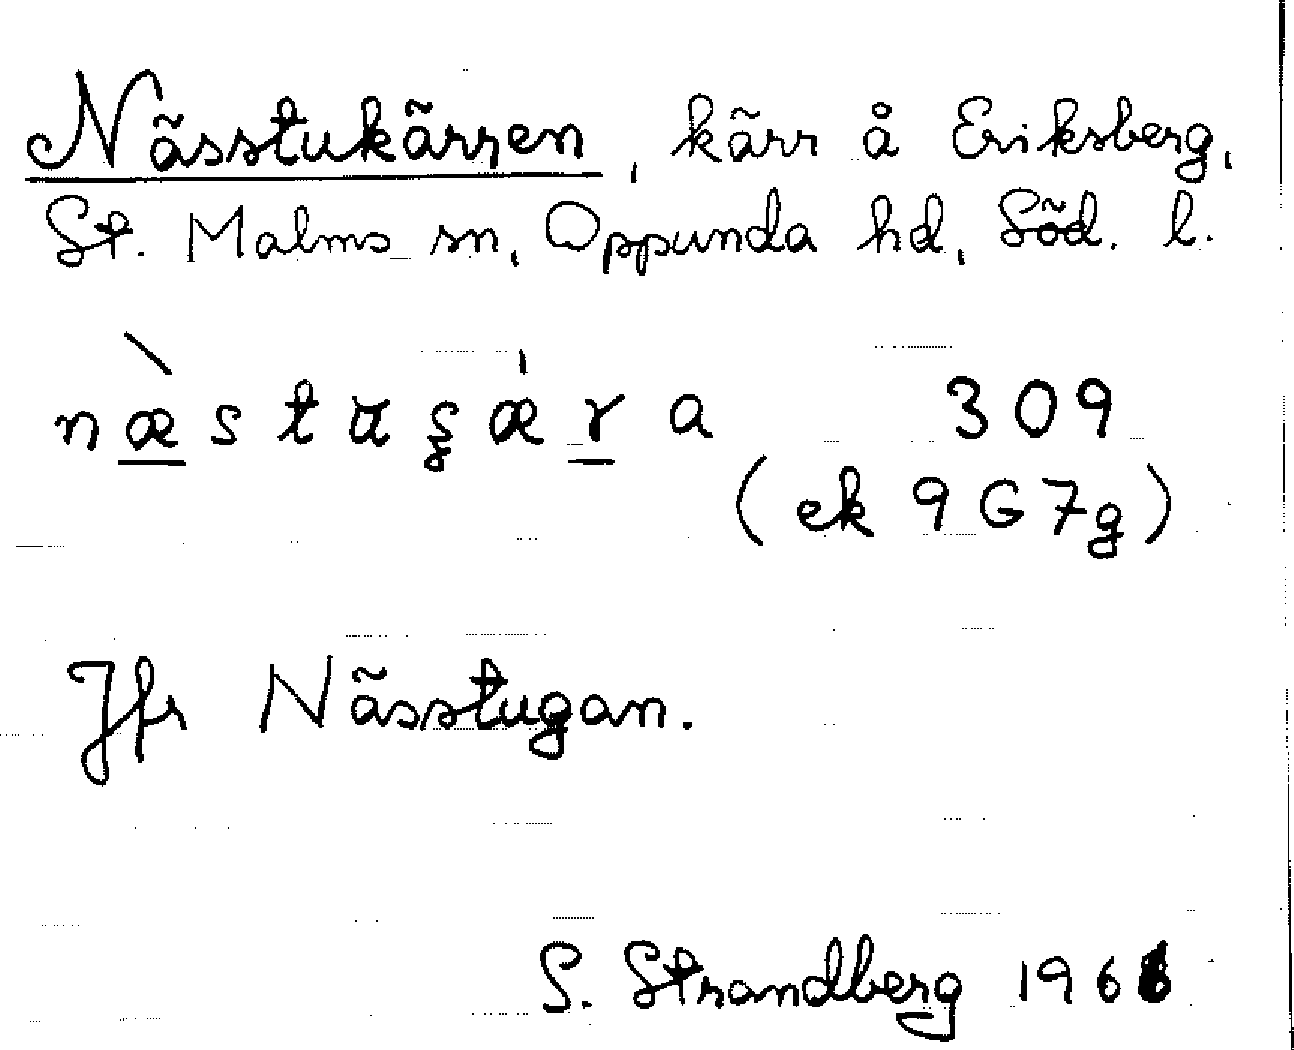 Nässtukärren, kärr å Eriksberg,
St. Malms sn, Oppunda hd, Söd. l.
næ̀stuʂæ̀ra 309
(ek 9G7g)
Jfr Nässtugan.
S. Strandberg